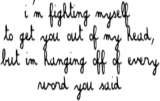 i'm fighting myself
to get you out of my head,
but im hanging off of every
word you said